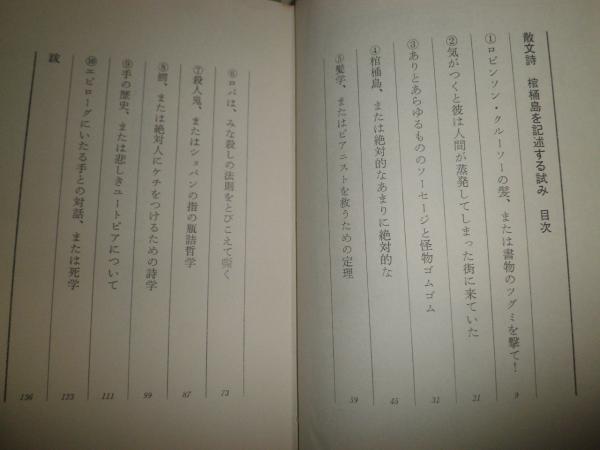 散文詩　棺桶島を記述する試み　目次
①ロビンソン・クルーソーの髪、または書物のツグミを撃て！ 9
②気がつくと彼は人間が蒸発してしまった街に来ていた 21
③ありとあらゆるもののソーセージと怪物ゴムゴム 31
④棺桶島、または絶対的なあまりに絶対的な 45
⑤髪学、またはピアニストを救うための定理 59
⑥ロバは、みな殺しの法則をとびこえて嘶く 73
⑦殺人鬼、またはショパンの指の瓶詰哲学 87
⑧鰐、または絶対人にケチをつけるための詩学 99
⑨手の歴史、または悲しきユートピアについて 111
⑩エピローグにいたる手との対話、または死学 123
跋 136